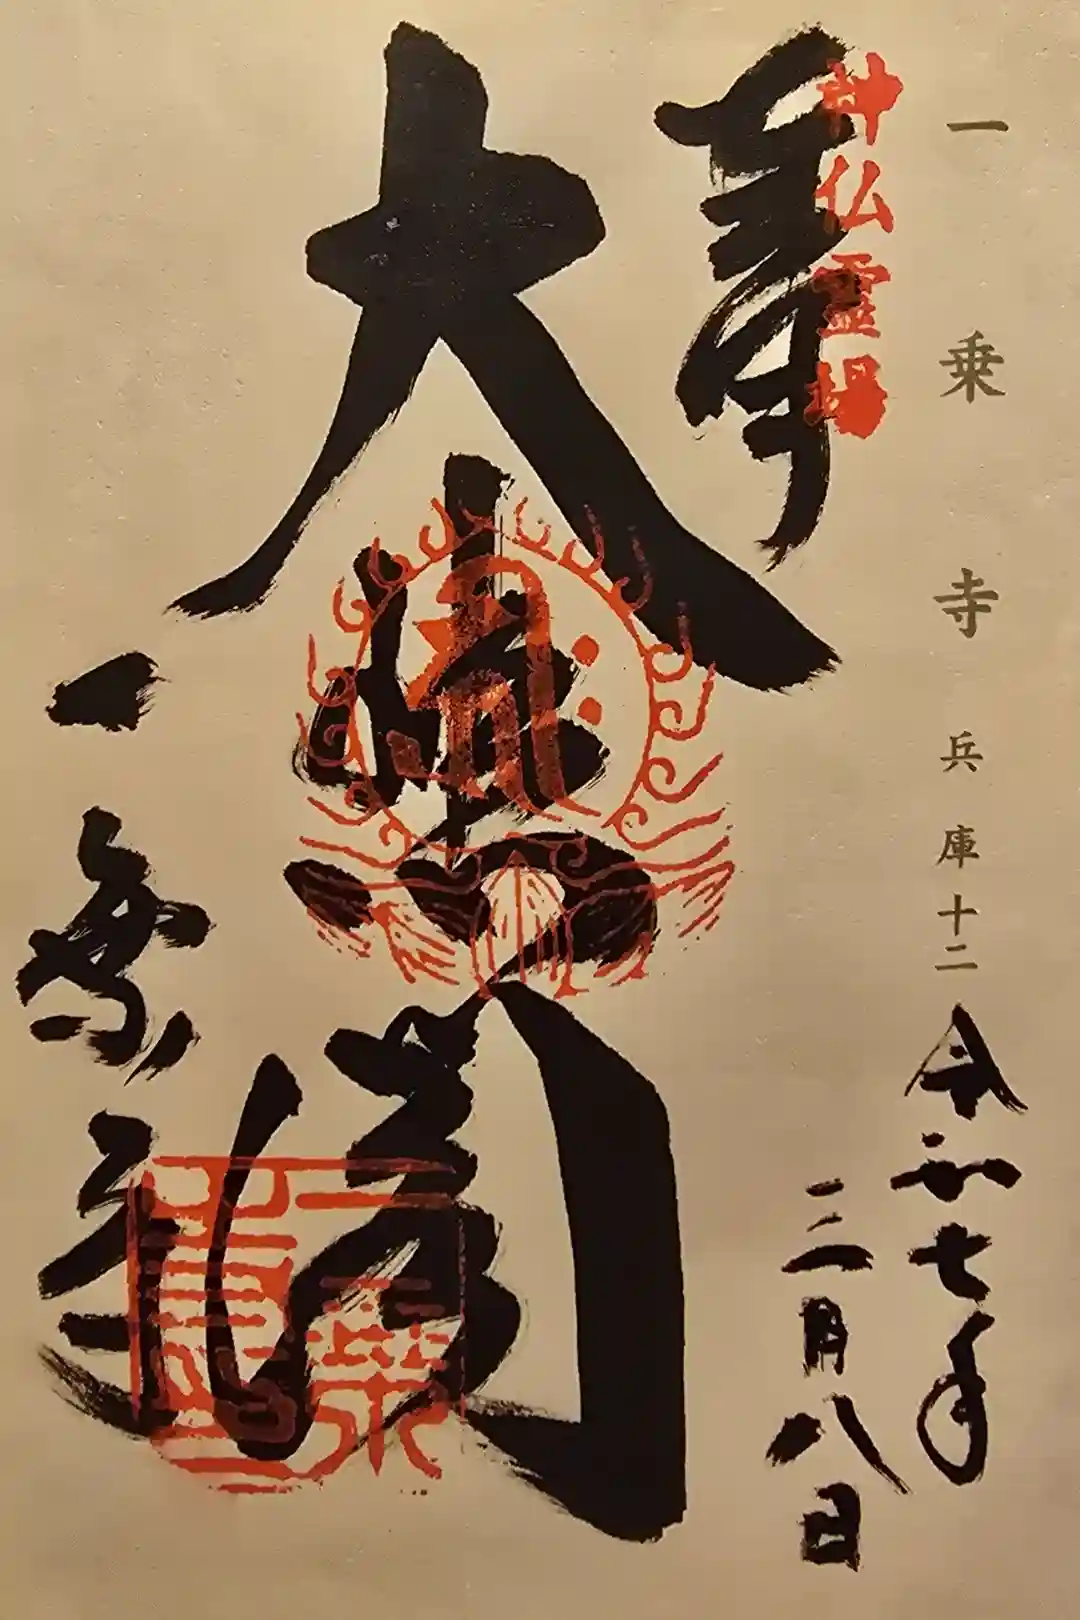 一乗寺 兵庫十二
令和七年
三月八日
奉
神仏霊場
大悲閣
一乗寺